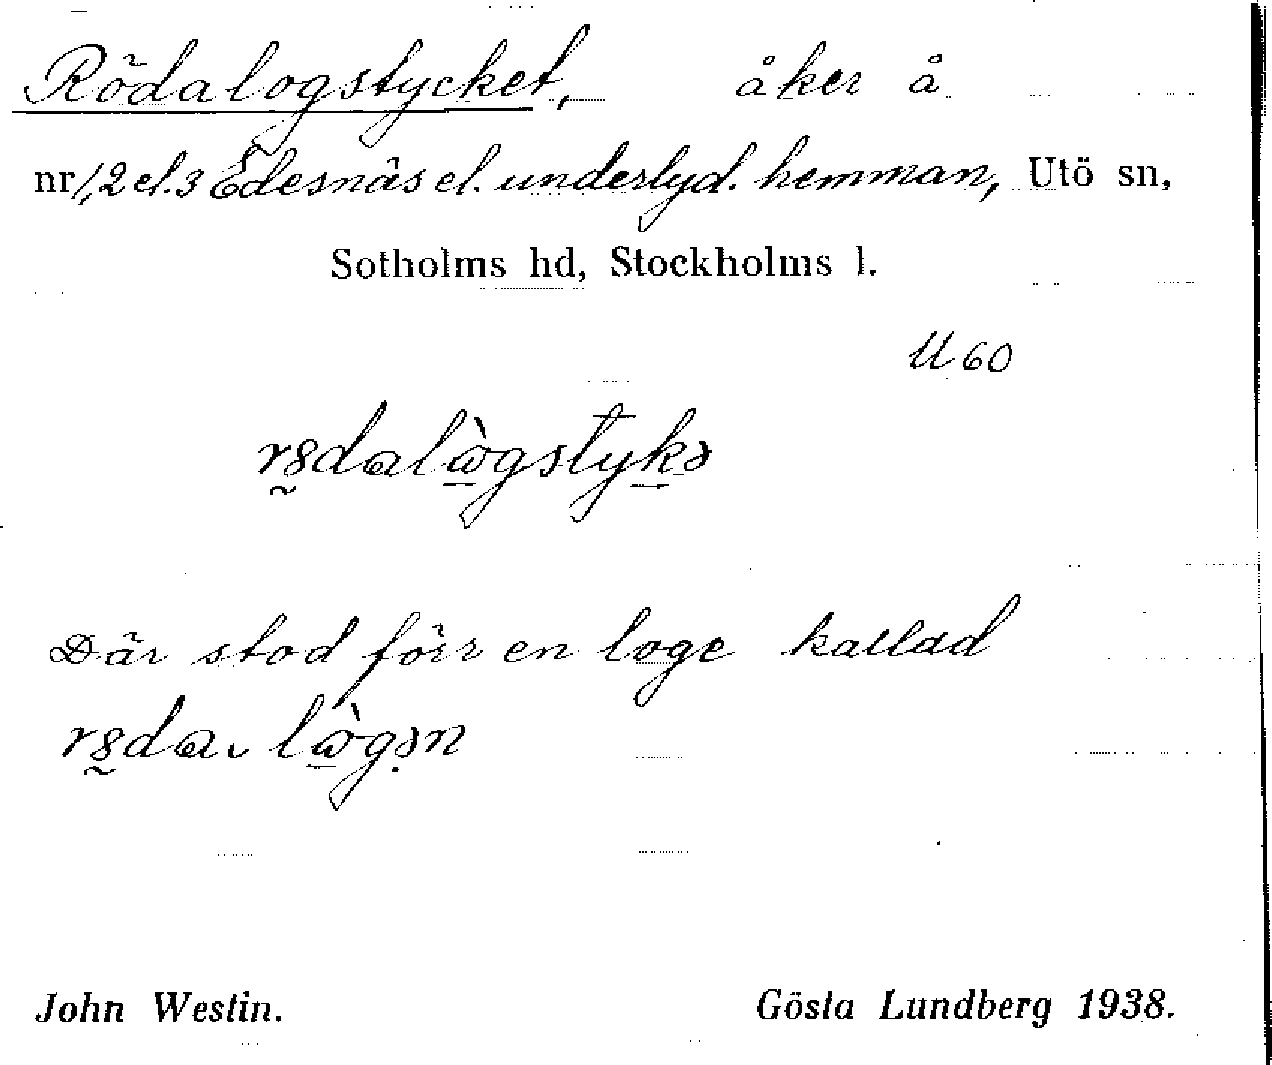 Rödalogstycket, åker å
nr 1, 2 el. 3 Edesnäs el. underlyd. hemman, Utö sn,
Sotholms hd, Stockholms l.
U 60
Där stod förr en loge kallad
John Westin. Gösta Lundberg 1938.